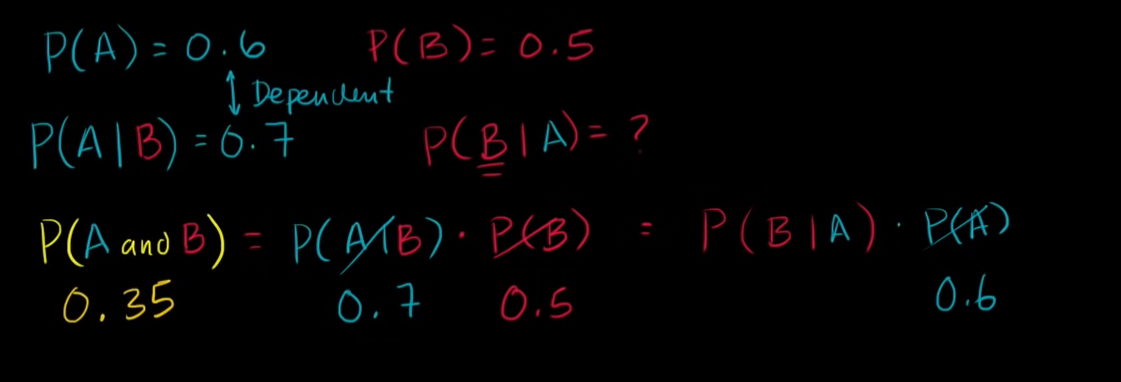 P(A) = 0.6 P(B) = 0.5
↕ Dependent
P(A|B) = 0.7 P(B|A) = ?
P(A and B) = P(A|B) · P(B) = P(B|A) · P(A)
0.35 0.7 0.5 0.6